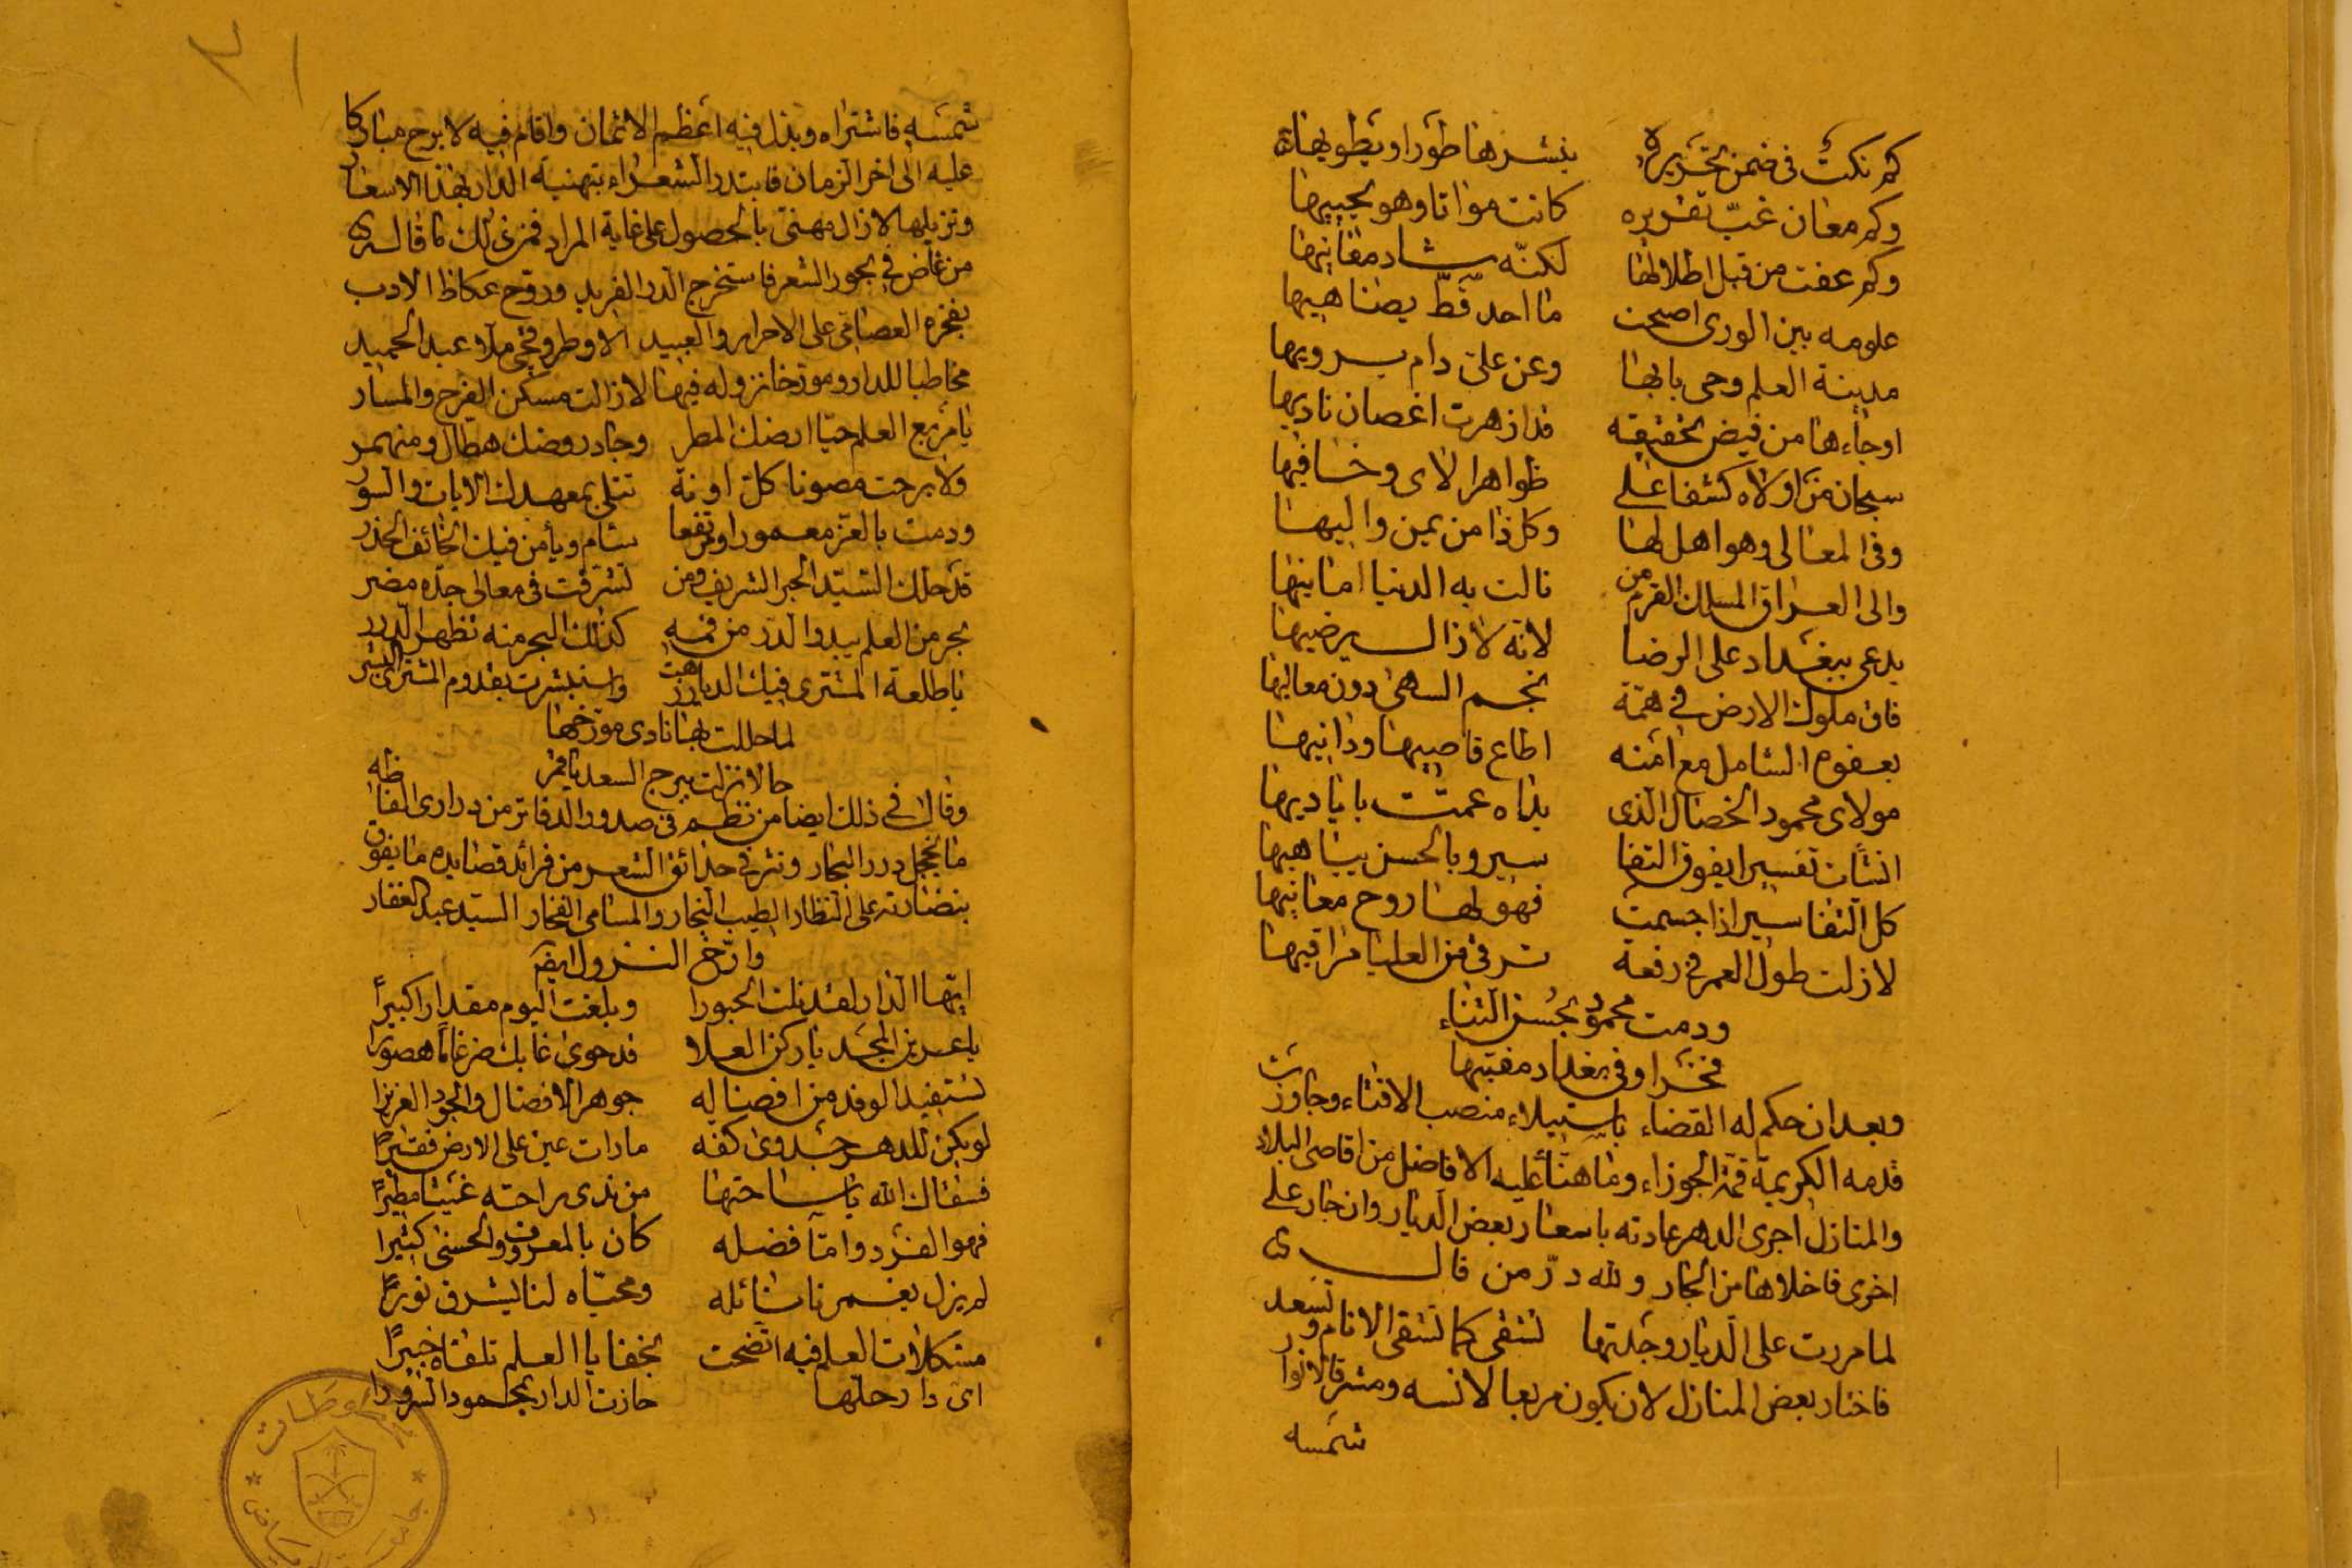 كم نكت في ضمن تحريره ينشرها طورا ويطويها
وكم معان غبّ تقريره كانت مواتا وهو يحييها
وكم عفت من قبل اطلالها لكنّه شاد مغانيها
علومه بين الورى اصبحت ما احد قطّ يضاهيها
مدينة العلم وحى بابها وعن علىّ دام يرويها
اوجاءها من فيض تحقيقه قد ازهرت اغصان ناديها
سبحان من اولاه كشفا على ظواهر الاى وخافيها
وفى المعالى وهو اهل لها وكل ذا من يمن واليها
والى العراق الملك القرم من نالت به الدنيا امانيها
يدعى ببغداد على الرضا لانّه لازال يرضيها
فاق ملوك الارض في همّة نجم السهى دون معاليها
بعفوه الشامل مع امنه اطاع قاصيها ودانيها
مولاى محمود الخصال الّذى يداه عمّت باياديها
انشأت تفسيرا يفوق التفا سير وبالحسن يباهيها
كل التفاسير اذا جسمت فهو لها روح معانيها
لازلت طول العمر في رفعة ترقى من العليا مراقيها
ودمت محمودُ بحُسن الثناء
فخرا وفي بغداد مفتيها
وبعد ان حكم له القضاء باستيلاء منصب الافتاء وجاوزت
قدمه الكريمة قمّة الجوزاء وما هنّأ عليه الافاضل من اقاصى البلاد
والمنازل اجرى الدهر عادته باسعار بعض الديار وان جار على
اخرى فاخلاها من الجار ولله درّ من قال
لما مررت على الديار وجلتها تشقى كما تشقى الانام وتسعد
فاختار بعض المنازل لان يكون مربعا لانسه ومشرقا لانوار
شمسه
شمسه فاشتراه وبذل فيه اعظم الاثمان واقام فيه لا برح مباركا
عليه الى اخر الزمان فابتدر الشعراء بتهنية الدار بهذا الاسعاد
ونزيلها لازال مهنى بالحصول على غاية المراد فمن ذلك ما قاله
من غاض في بحور الشعر فاستخرج الدر الفريد وروّح عكاظ الادب
بفخره العصامى على الاحرار والعبيد الاوطروقجى ملا عبد الحميد
مخاطبا للدار ومورخا نزوله فيها لازالت مسكن الفرح والمسار
يا مربع العلم حيّا ارضك المطر وجاد روضك هطال ومنهمر
ولا برحت مصونا كلّ اونة تتلى بمعهدك الايات والسور
ودمت بالعزّ معمورا ومرتفعا سام ويأمن فيك الخائف الحذر
قد حلّك السيّد الحبر الشريف ومن تشرفت فى معالى جدّه مضر
بحر من العلم يبدو الدر من فمه كذلك البحر منه تظهر الدرر
يا طلعة المشترى فيك الديار زهت واستبشرت بقدوم المشترى البشر
لما حللت بها نادى مورّخها
حالا نزلت ببرج السعد يا قمر
وقال فى ذلك ايضا من نظم فى صدور الدفاتر من درارى الفاظه
ما يخجل درر البحار ونثر فى حدائق الشعر من فرائد قصايده ما يفوق
بنضارته على النظار الطيب النجار والسامى الفخار السيّد عبد الغفار
وارّخ النزول ايضا
ايّها الدار لقد نلت الحبورا وبلغت اليوم مقدارا كبيراً
يا عرين المجد يا ركن العلا قد حوى غابك ضرغاما هصورا
تستفيد الوفد من افضاله جوهر الافضال والجود الغزيرا
لو يكن للدهر جدوى كفه ما رات عين على الارض فقيراً
فسقاك الله يا ساحتها من ندى راحته غيثا مطيراً
فهو الفرد واما فضله كان بالمعروف والحسنى كثيرا
لم يزل يغمرنا نائله ومحيّاه لنا يشرق نوراً
مشكلات العلم فيه اتضحت بخفايا العلم تلقاه خبيراً
اىّ دار حلّها حازت الدار بمحمود السرورا